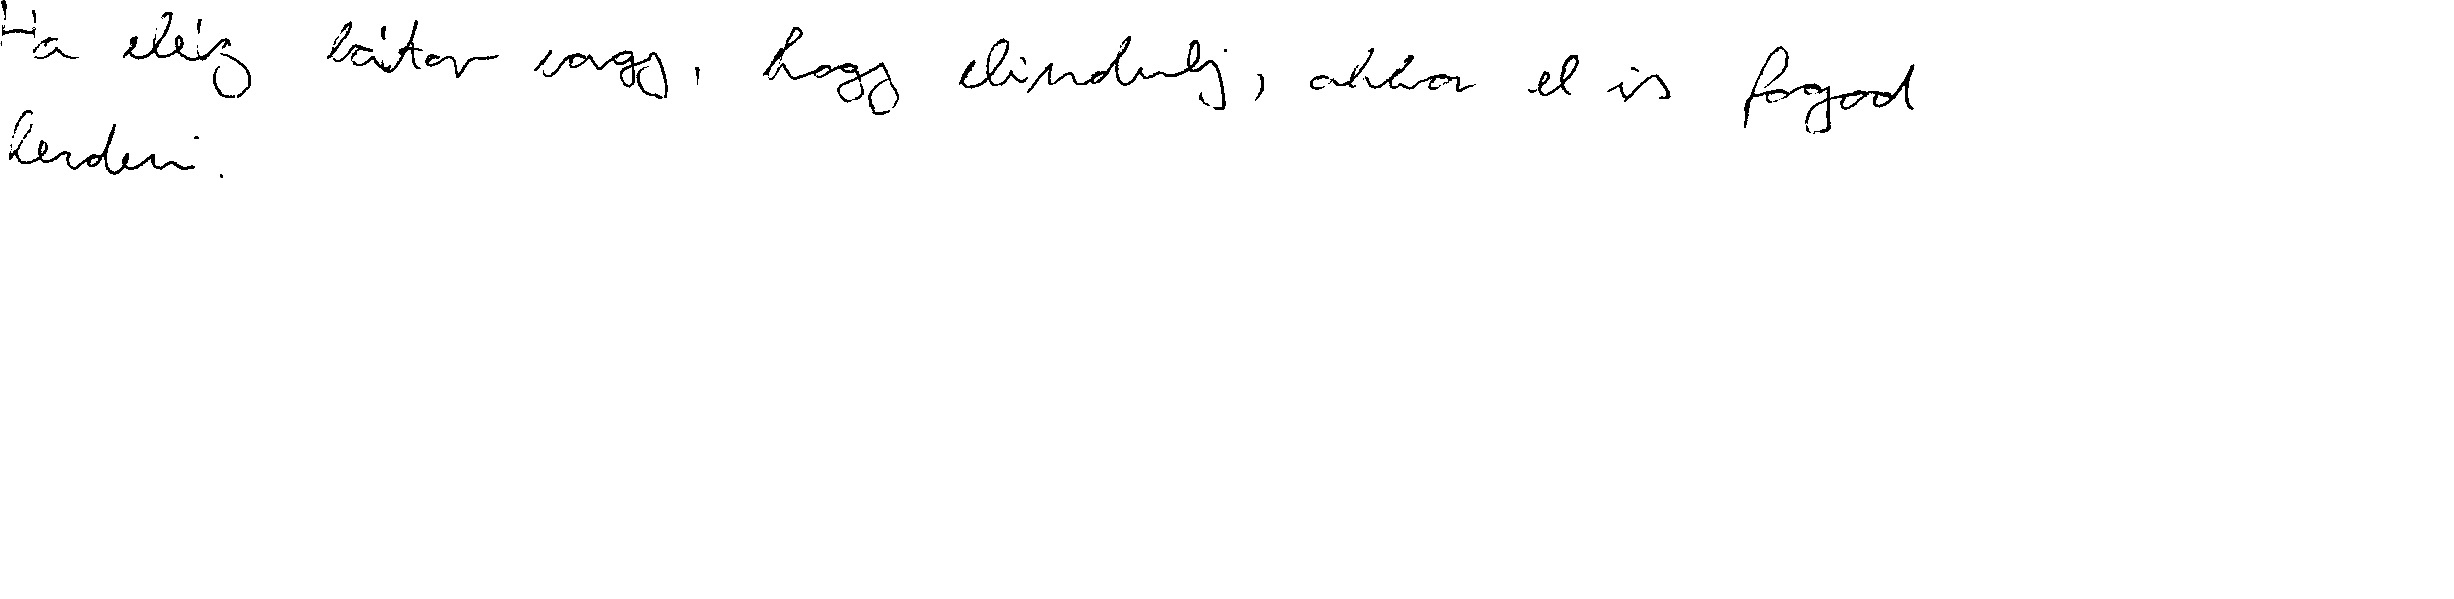 Ha eléig bátor vagy, hogy elindulj, akkor el is fogod
kezdeni.